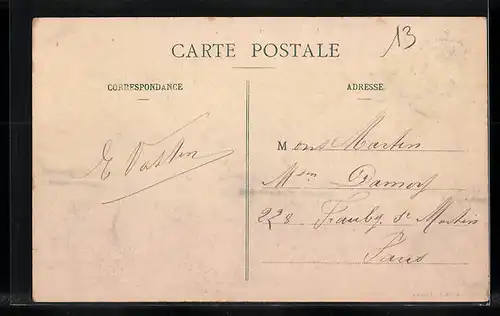 13
CARTE POSTALE
CORRESPONDANCE
ADRESSE
Mons Martin
Mson Damoy
228 Faubg St Martin
Paris